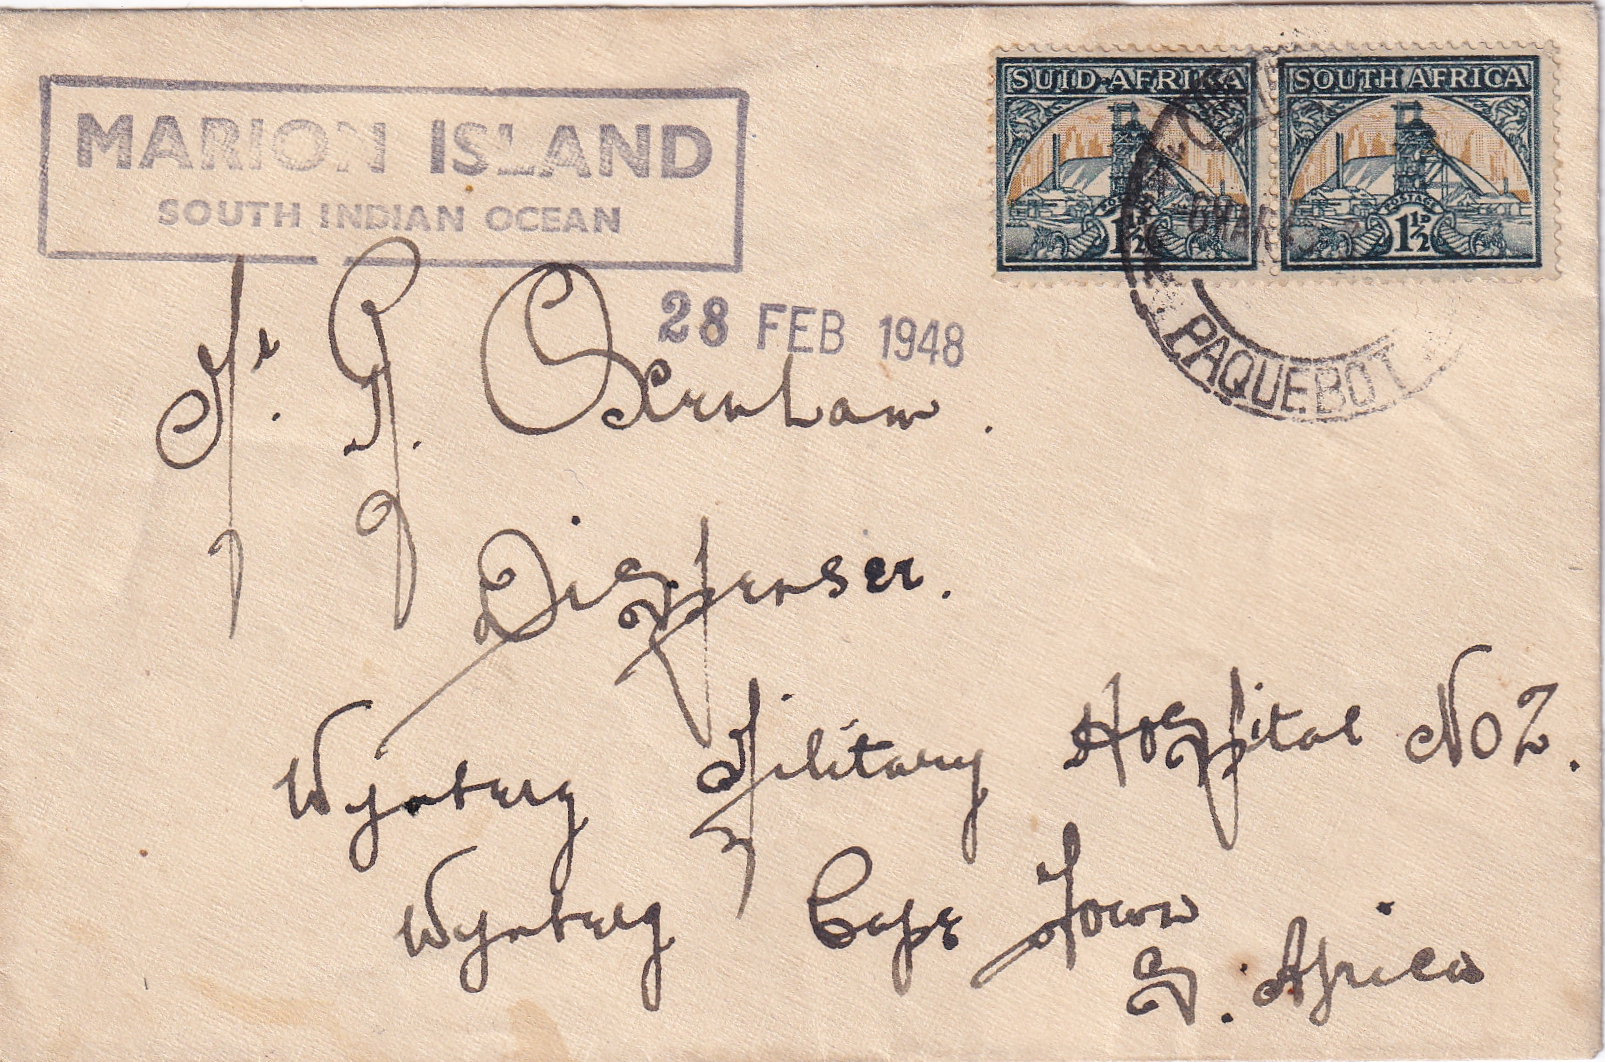 MARION ISLAND
SOUTH INDIAN OCEAN
SUID-AFRIKA
1½
POSTAGE
SOUTH AFRICA
1½D
PAQUEBOT
28 FEB 1948
Mr. G. Oxenham.
Dispenser.
Wynberg Military Hospital No 2.
Wynberg Cape Town
S. Africa